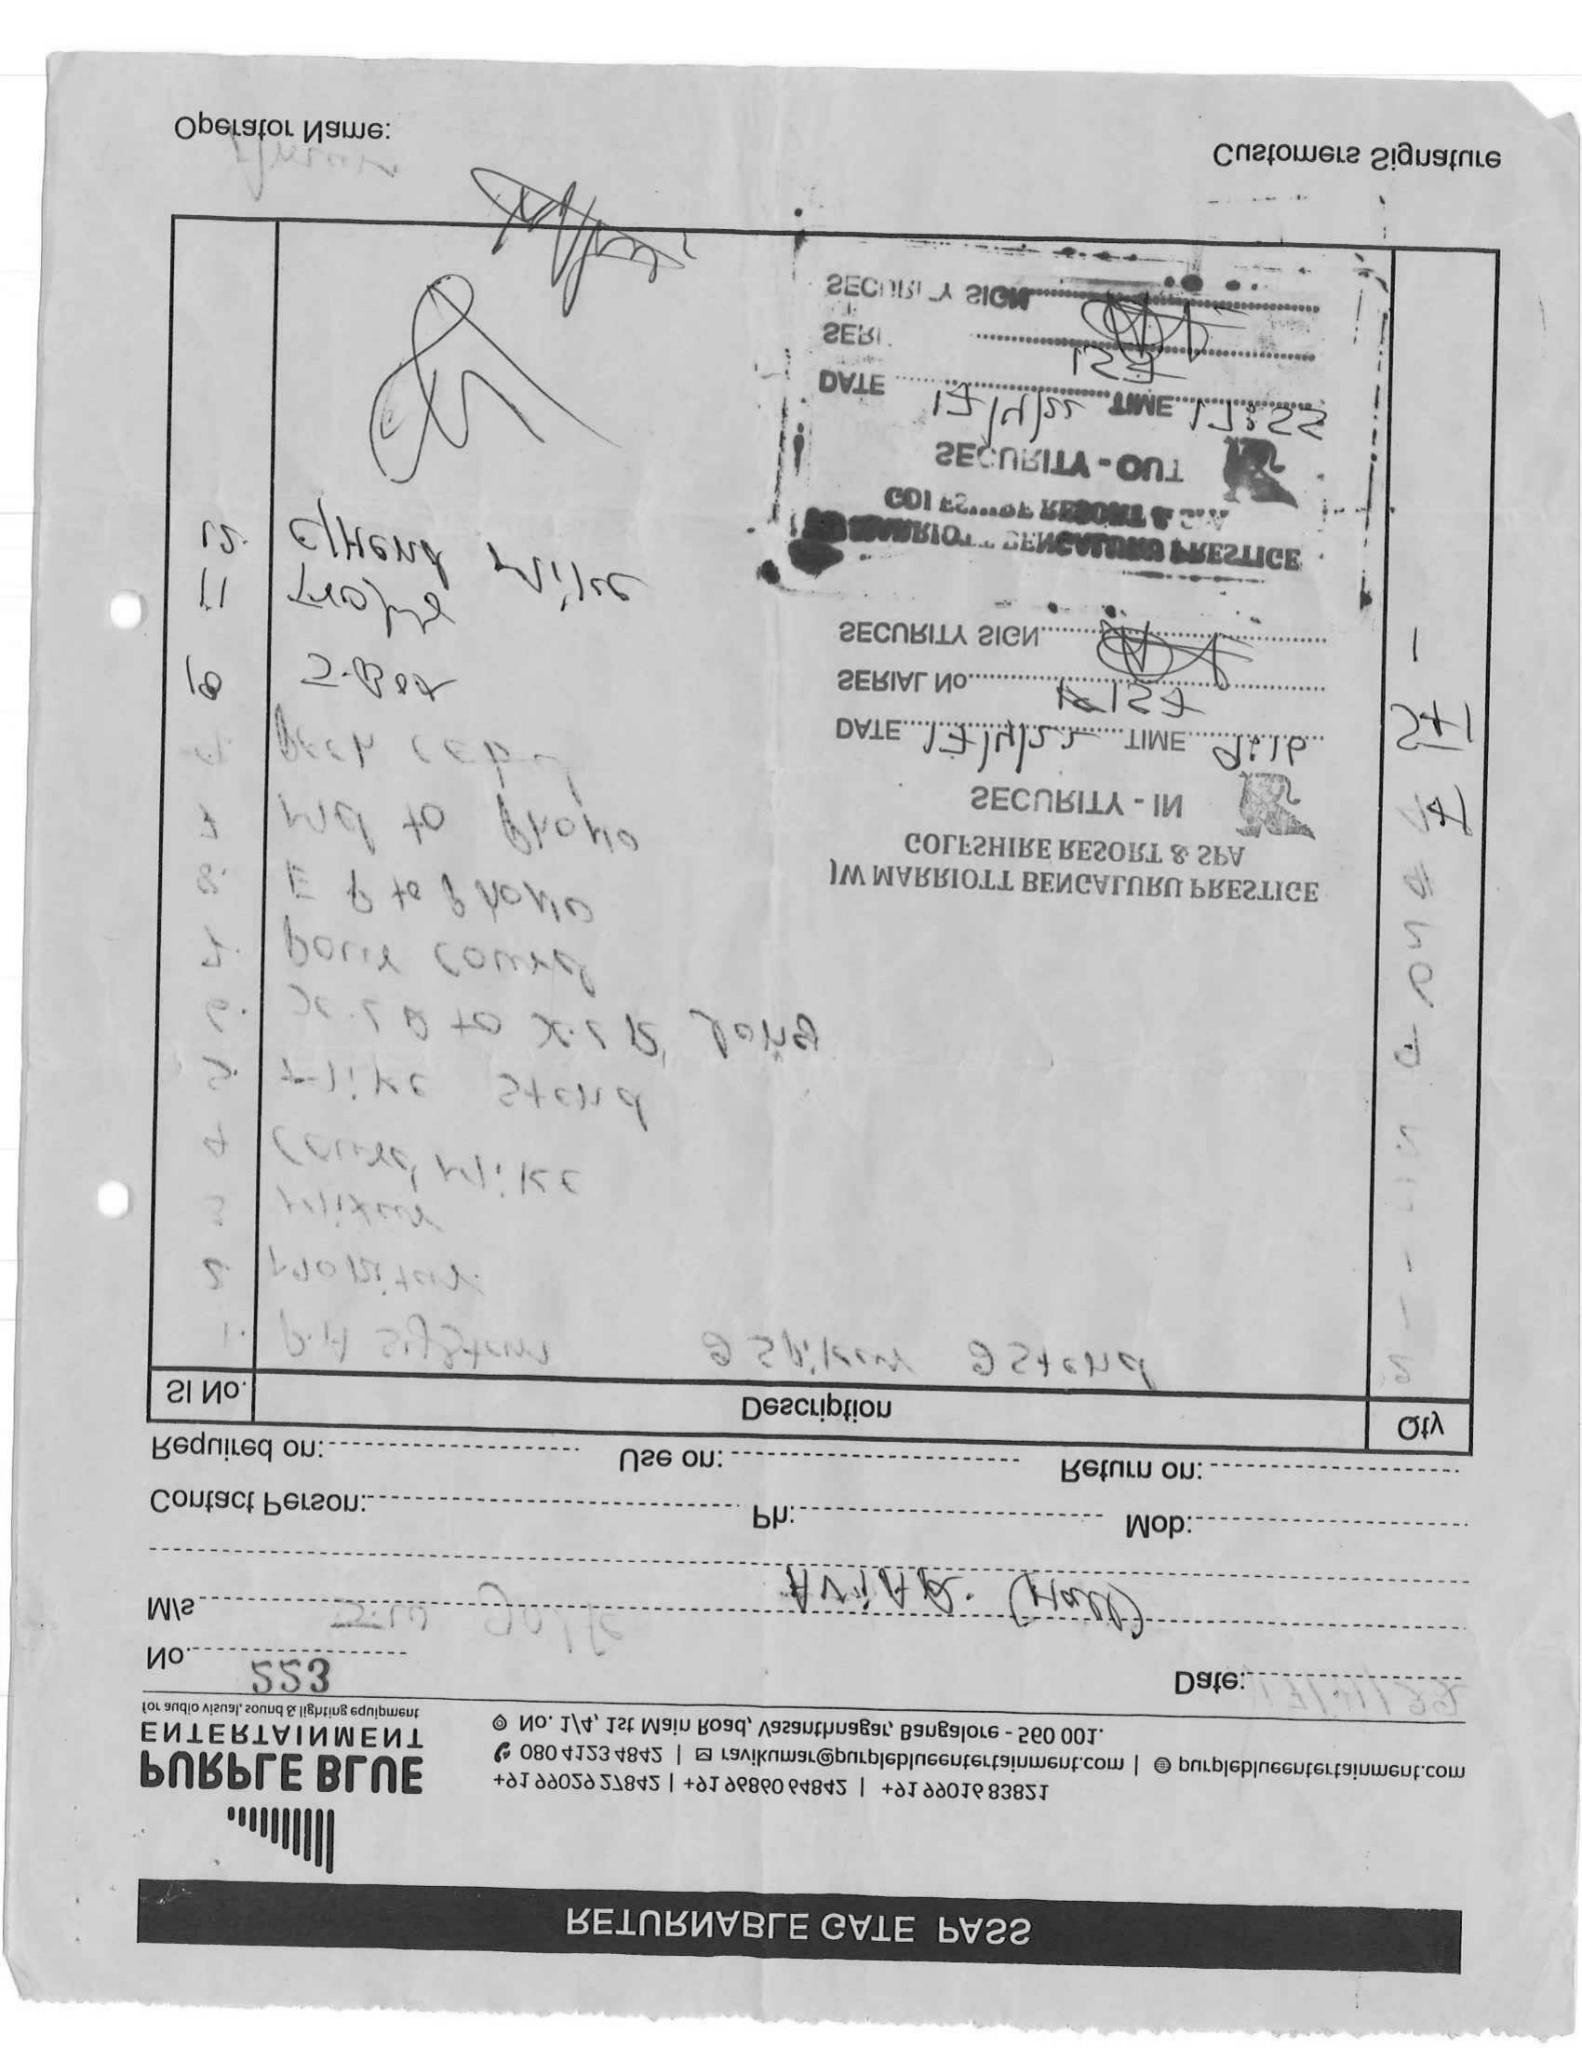 RETURNABLE GATE PASS
PURPLE BLUE
ENTERTAINMENT
for audio visual, sound & lighting equipment
+91 99029 27842 | +91 96860 64842 | +91 99016 83821
080 4123 4842 | ravikumar@purpleblueentertainment.com | purpleblueentertainment.com
No. 1/4, 1st Main Road, Vasanthnagar, Bangalore - 560 001.
No. 223
Date: 17/4/22
M/s AVIAR. (Hall)
Contact Person: Ph: Mob:
Required on: Use on: Return on:
Sl No. Description Qty
1. P.A System 2 Spiker 2 Stend 2
2. Monitor 1
3 Mixer 1
4 Coured Mike
5. Mike Stend
6. X.L R to X.L R, long
7. Power coured
8. E P to Phono
9 Md to Phono
JW MARRIOTT BENGALURU PRESTIGE
GOLFSHIRE RESORT & SPA
SECURITY - IN
DATE 17/4/22 TIME 9:16
SERIAL No 157
SECURITY SIGN
10 J-Box 5+1
11 Laptop 1
12. C/Hend Mike
JW MARRIOTT BENGALURU PRESTIGE
GOLFSHIRE RESORT & SPA
SECURITY - OUT
DATE 17/4/22 TIME 17:55
SERI 157
SECURITY SIGN
Operator Name:
Customers Signature